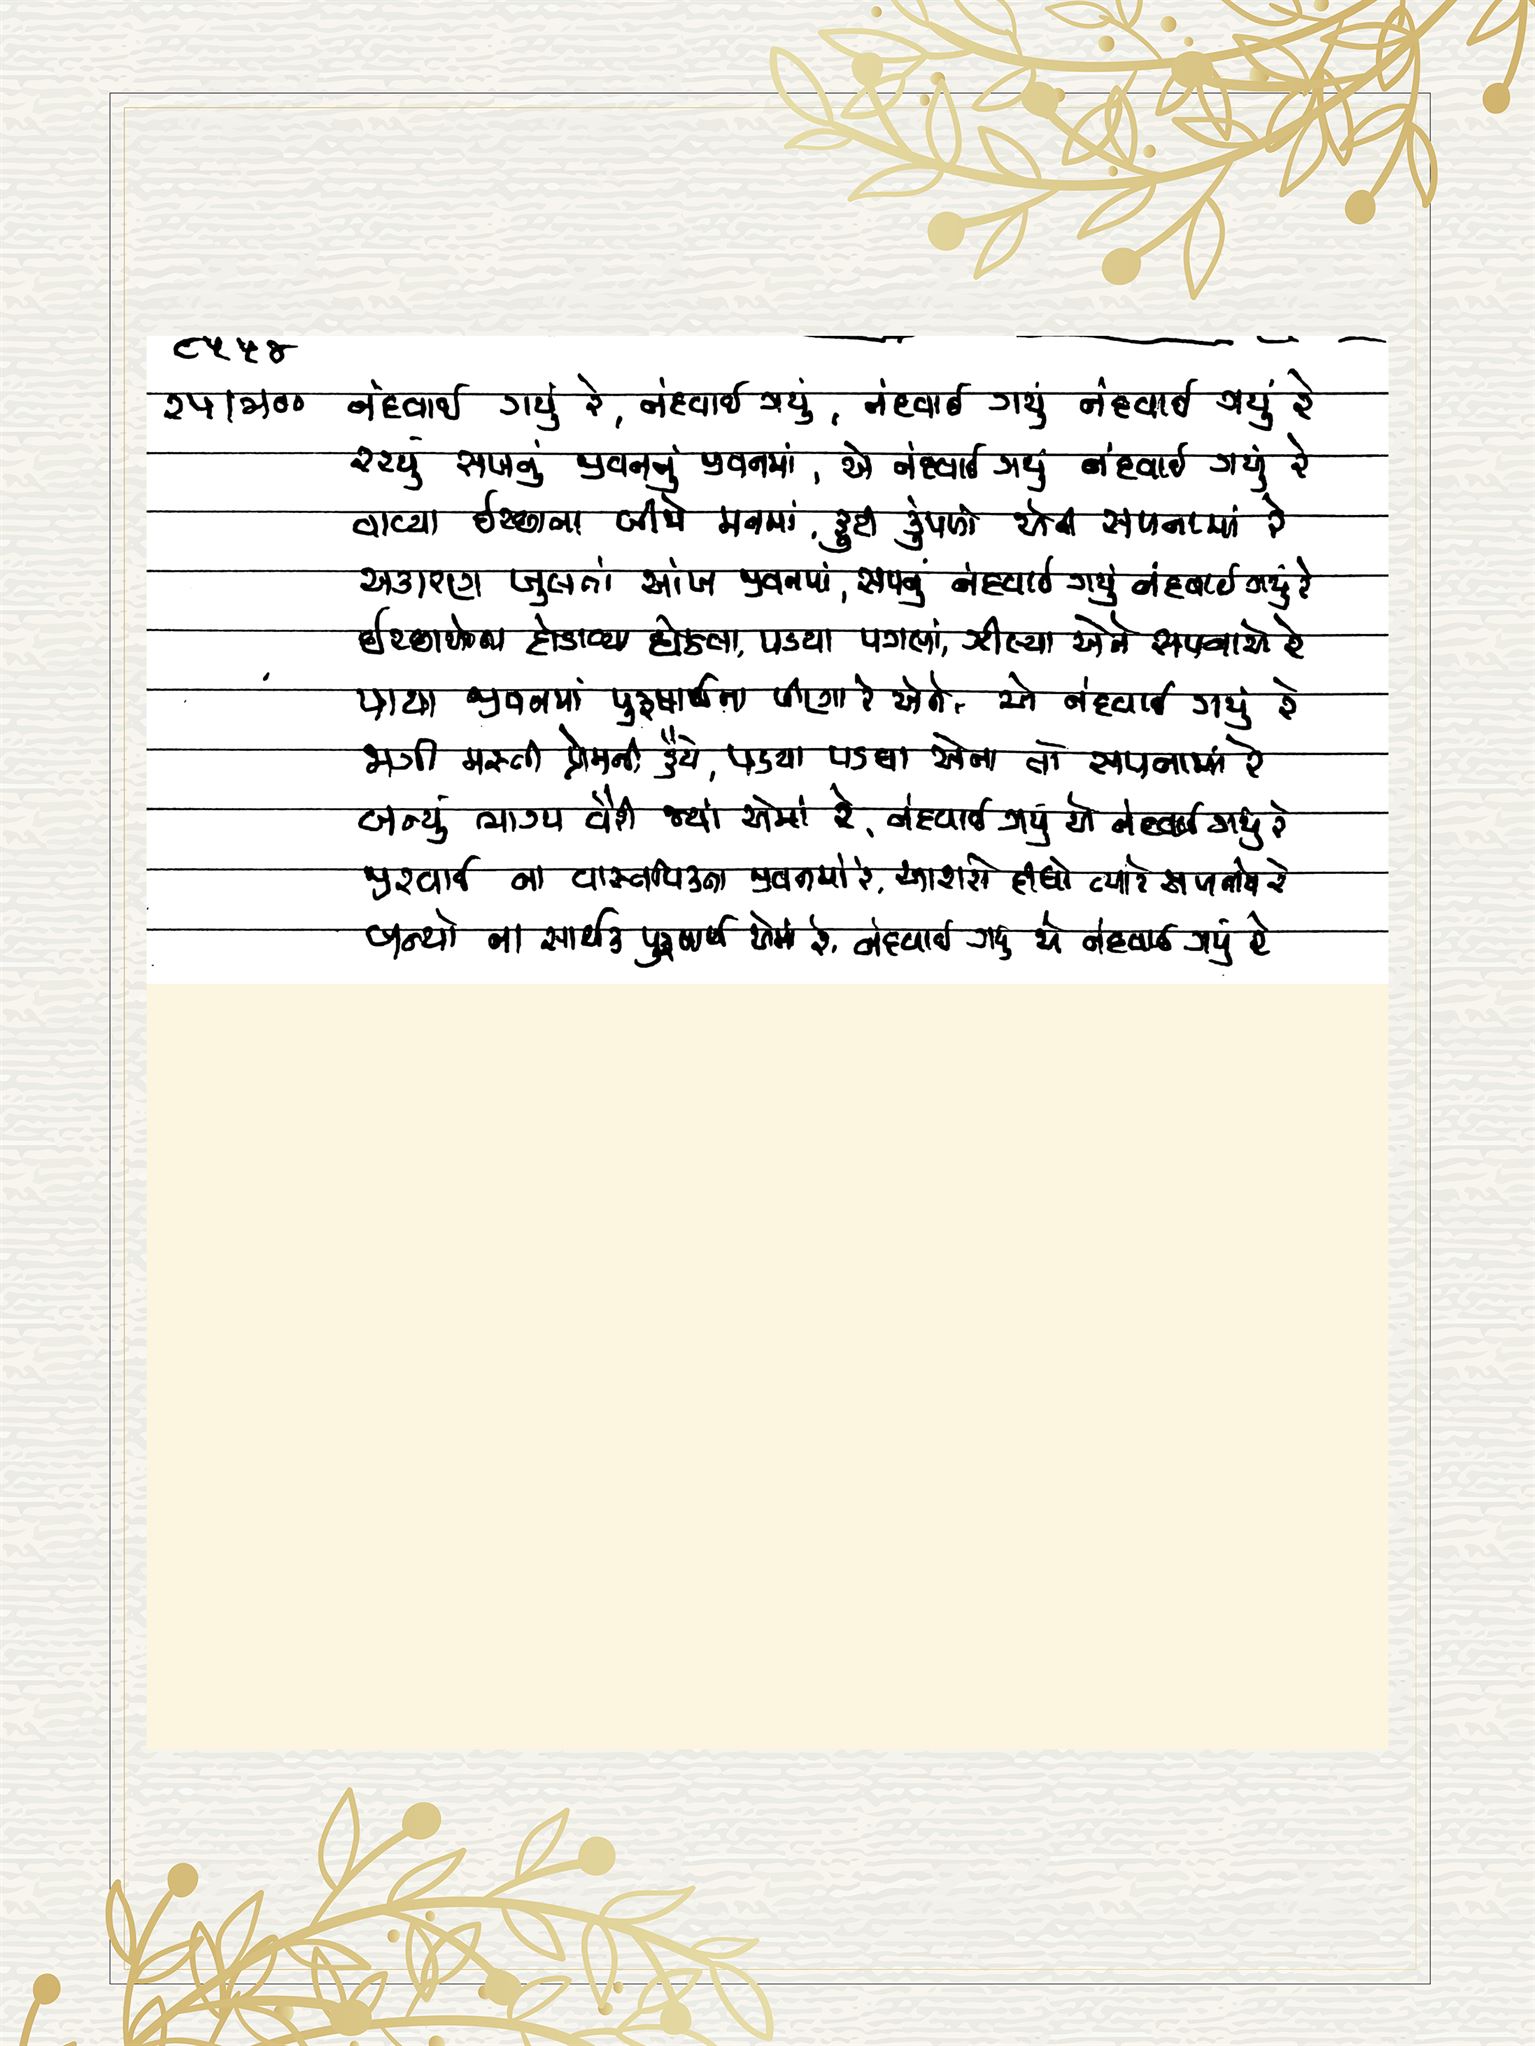 ૮૫૫૪
૨૫/મ૦૦ નંદવાઈ ગયું રે, નંદવાઈ ગયું, નંદવાઈ ગયું નંદવાઈ ગયું રે
રચ્યું સપનું જીવનનું જીવનમાં, એ નંદવાઈ ગયું નંદવાઈ ગયું રે
વાવ્યા ઈચ્છાના બીજે મનમાં, ફૂટી કુંપળો એની સપનામાં રે
અકારણ ખુલતાં આંખ જીવનમાં, સપનું નંદવાઈ ગયું નંદવાઈ ગયું રે
ઈચ્છાઓના દોડાવ્યા ઘોડલા, પડયા પગલાં, ઝીલ્યા એને સપનાએ રે
પાયા જીવનમાં પુરૂષાર્થના પીણા રે એને, એ નંદવાઈ ગયું રે
જાગી મસ્તી પ્રેમની હૈયે, પડયા પડઘા એના તો સપનામાં રે
બન્યું ભાગ્ય વૈરી જ્યાં એમાં રે, નંદવાઈ ગયું એ નંદવાઈ ગયું રે
જીરવાઈ ના વાસ્તવિકતા જીવનમાં રે, આશરો લીધો ત્યારે સપનાનો રે
બન્યો ના સાર્થક પુરૂષાર્થ એમાં રે, નંદવાઈ ગયું એ નંદવાઈ ગયું રે